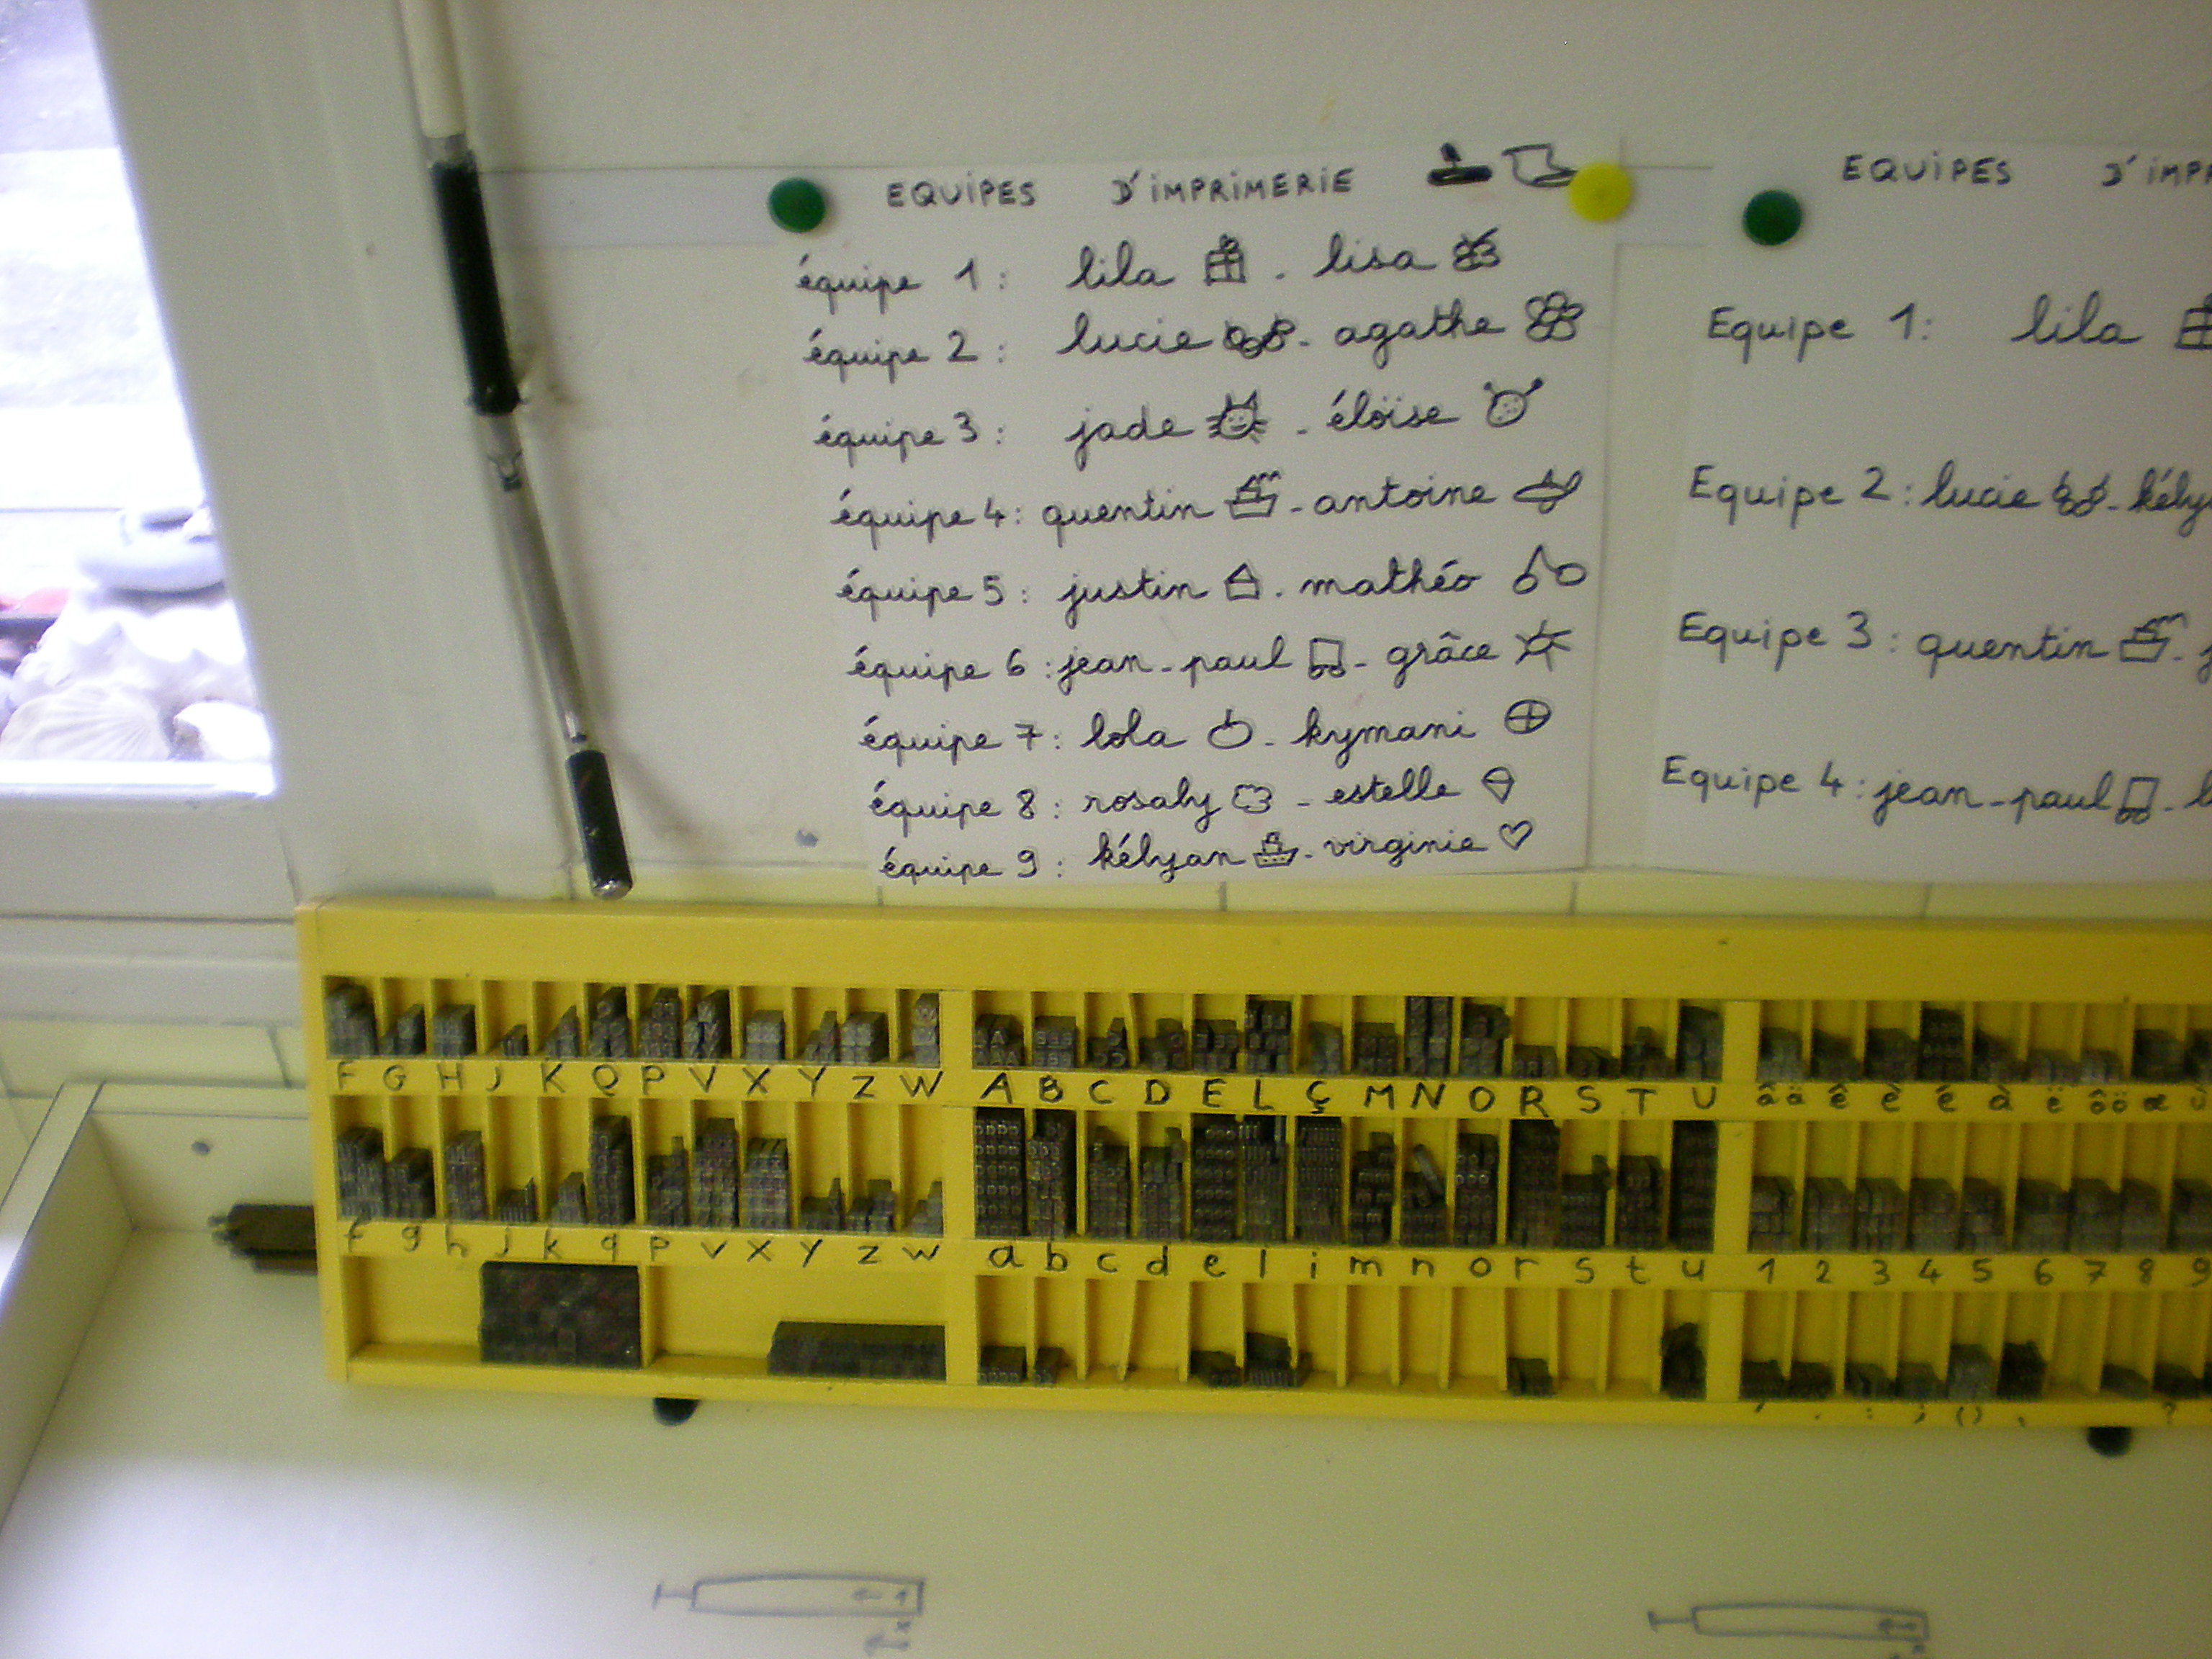 EQUIPES D'IMPRIMERIE
équipe 1 : lila . lisa
équipe 2 : lucie - agathe
équipe 3 : jade - éloïse
équipe 4 : quentin - antoine
équipe 5 : justin . mathéo
équipe 6 : jean-paul - grâce
équipe 7 : lola - kymani
équipe 8 : rosaly - estelle
équipe 9 : kélyan - virginie
EQUIPES D'IMPR
Equipe 1 : lila
Equipe 2 : lucie - kély
Equipe 3 : quentin - j
Equipe 4 : jean-paul - l
F G H J K Q P V X Y Z W A B C D E L Ç M N O R S T U â ä ê è é à ë ô ö œ
f g h j k q p v x y z w a b c d e l i m n o r s t u 1 2 3 4 5 6 7 8 9
' . : ; () , ?